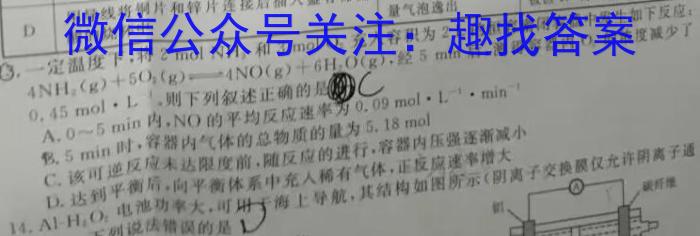 用导线将铜片和锌片连接后插入盛有
量气泡逸出
D
微信公众号关注：趣找答案
一定温度下，将2 mol NH₃和 容积为2
4NH₃(g)+5O₂(g)⇌4NO(g)+6H₂O(g)，经5 min后，
0.45 mol·L⁻¹，则下列叙述正确的是 C
A. 0～5 min内，NO的平均反应速率为0.09 mol·L⁻¹·min⁻¹
B. 5 min时，容器内气体的总物质的量为5.18 mol
C. 该可逆反应未达限度前，随反应的进行，容器内压强逐渐减小
D. 达到平衡后，向平衡体系中充入稀有气体，正反应速率增大
14. Al-H₂O₂电池功率大，可用于海上导航，其结构如图所示(阴离子交换膜仅允许阴离子通
下列说法错误的是 D
A
铝
碳纤维